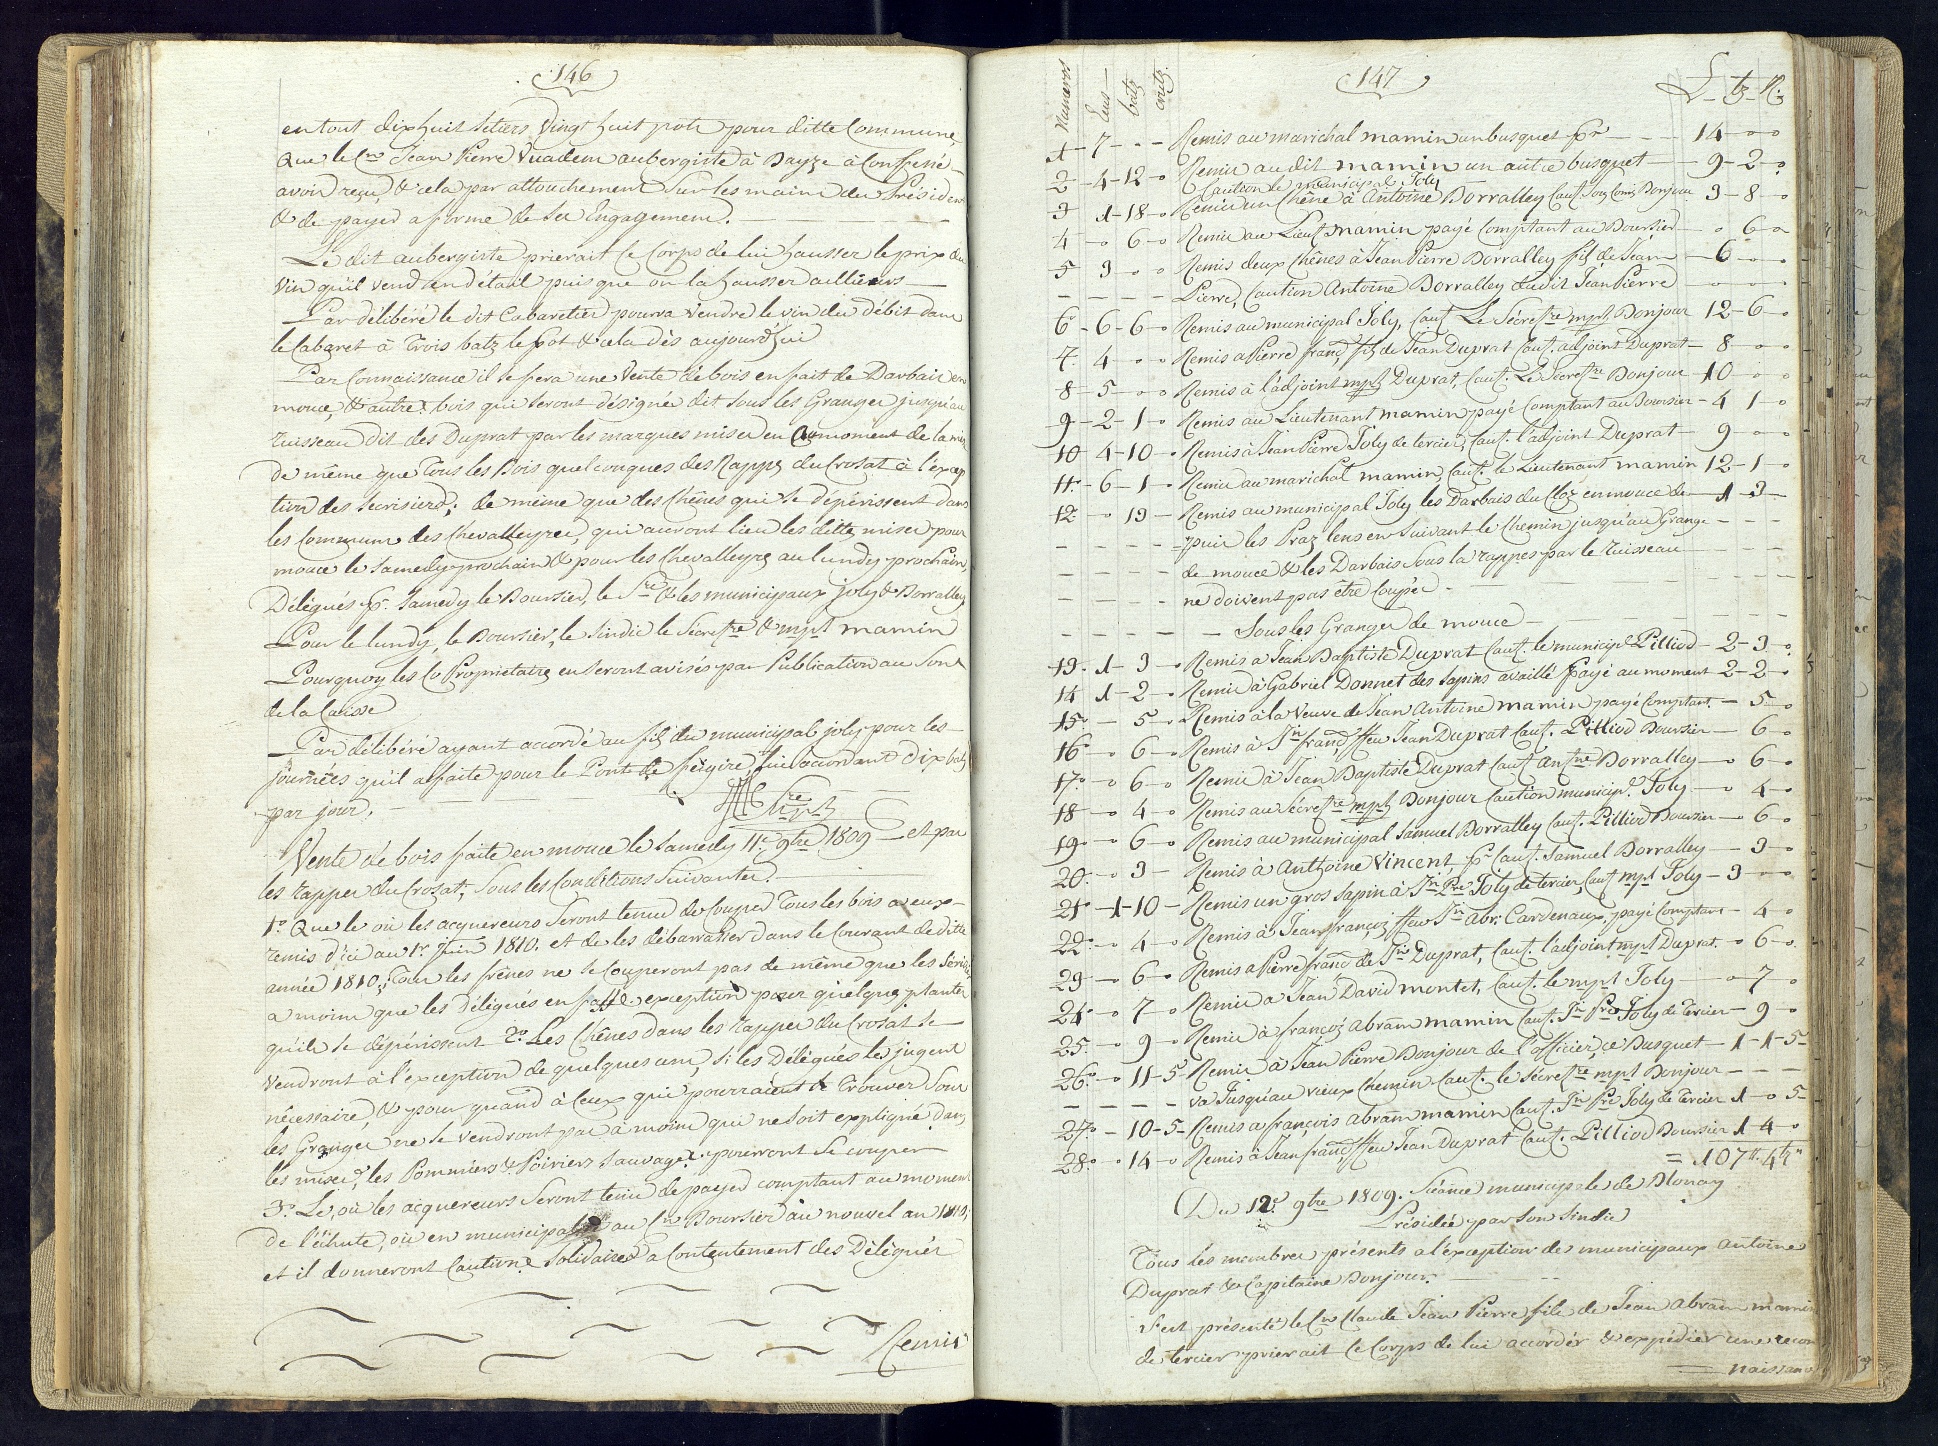 146
en tout dixhuit setiers, vingt huit pots pour ditte Commune,
que le Cen Jean Pierre Vuadens aubergiste à Bayze à Confessé
avoir reçu, & cela par attouchement Sur les mains du Président
& de payer a forme de ses Engagemens.
Le dit aubergiste prierait le Corps de lui hausser le prix du
vin qu'il vend en détail puis que on l'a hausser aillieurs
Par délibéré le dit Cabaretier pourra vendre le vin du débit dans
le Cabaret à Trois batz le pot & cela dès aujourd'hui
Par Connaissance il se fera une Vente de bois en fait de Darbais en
mouce, & autres bois qui seront désignés dit sous les Granges jusqu'au
ruisseau dit des Duprat par les marques mises en au moment de la mise
de même que Tous les Bois quelconques des Rappes du Crosat à l'excep
tion des Serisiers; de même que des Chênes qui se dépérissent dans
les Communs des Chevalleyres, qui auront lieu les dittes mises pour
mouce le Samedy prochain & pour les Chevalleyres au lundy prochain,
Délégués pr. Samedy le Boursier, le Sre & les municipaux joly & Borralley
Pour le lundy, le Boursier, le Sindic le Secretre & mpl mamin
Pourquoy les Co Propriétaires en seront avisés par Publication au Son
de la Caisse
Par délibéré ayant accordé au fils du municipal joly pour les
journées qu'il a faite pour le Pont de feigire, lui accordant dix batz
par jour.
Vente de bois faite en mouce le Samedy 11e 9bre 1809 et par
les rappes du Crosat, Sous les Conditions Suivantes.
1o Que le où les acquereurs Seront tenus de Couper Tous les bois a eux
remis d'ici au 1r Juin 1810. et de les débarrasser dans le Courant de ditte
année 1810; Tous les frênes ne se Couperont pas de même que les Seris
a moins que les délégués en fasse exception pour quelques plantes
qu'ils se dépérissent 2o Les Chênes dans les rappes du Crosat se
vendront à l'exception de quelques uns, si les Délégués le jugent
nécessaire, & pour quand à Ceux qui pourraient se Trouver Sous
les Granges ne se vendront pas à moins que ne soit expliqué dans
les mises, les Pommiers & Poiriers sauvages pourront se couper
3o Le, où les acquereurs Seront tenus de payer comptant au moment
de l'échute, où en municipalité au Cen Boursier au nouvel an 1810;
et il donneront Cautions Solidaires a Contentement des Délégués
Remis
147
Numeros Ecus batz crutz L bz R.
1 - 7 - - - Remis au marichal mamin un busquet pr - 14 - o o
2 - 4 - 12 - o Remis audit mamin un autre busquet - 9 - 2 - o
Caution le municipal Joly
3 1 - 18 - o Remis un Chêne à Antoine Borralley Caut. Jean Louis Bonjour 3 - 8 - o
4 - o 6 - o Remis au Lieut mamin payé Comptant au Boursier - o 6 - o
5 3 - o o Remis deux Chênes à Jean Pierre Borralley fils de Jean - 6 - o o
Pierre, Caution Antoine Borralley dudit Jean Pierre
6 - 6 - 6 - o Remis au municipal Joly, Caut. Le Secretre mpl Bonjour 12 - 6 - o
7. 4 - o o Remis a Pierre franç fils de Jean Duprat Caut. adjoint Duprat - 8 - o o
8 - 5 - o o Remis à l'adjoint mpl Duprat, Caut. Le Secretre Bonjour 10 - o o
9 - 2 - 1 - o Remis au Lieutenant mamin payé Comptant au Boursier - 4 1 - o
10 4 - 10 - o Remis à Jean Pierre Joly de tercier, Caut. l'adjoint Duprat - 9 - o o
11. - 6 - 1 - o Remis au marichal mamin, Caut. le Lieutenant mamin 12 - 1 - o
12. - o 13 - Remis au municipal Joly les Darbais du Cloz en mouce de - 1 3 -
puis les Praz lens en Suivant le Chemin jusqu'au Grange
de mouce & les Darbais Sous la rappes par le ruisseau
ne doivent pas être Coupés
Sous les Granges de mouce
13. 1 - 3 - o Remis a Jean Baptiste Duprat Caut. le municipl Pilliod - 2 - 3 - o
14 1 - 2 - o Remis à Gabriel Donnet des sapins availlé payé au moment 2 - 2 - o
15 - 5 - o Remis à la Veuve de Jean Antoine mamin payé Comptant. - 5 - o
16 - o 6 - o Remis à Jn franç ffeu Jean Duprat Caut. Pilliod Boursier - 6 - o
17 - o 6 - o Remis à Jean Baptiste Duprat Caut Antne Borralley - o 6 - o
18 - o 4 - o Remis au Secretre mpl Bonjour Caution municip. Joly - o 4 - o
19 - o 6 - o Remis au municipal Samuel Borralley Caut. Pilliod Boursier - o 6 - o
20. - o 3 - Remis à Anthoine Vincent, pr Caut. Samuel Borralley - 3 - o
21 - 1 - 10 - Remis un gros Sapin à Jn Pre Joly de tercier, Caut mpl Joly - 3 - o o
22 - o 4 - o Remis à Jean françois ffeu Jn abr. Cardenaux, payé Comptant - 4 - o
23 - o 6 - o Remis a Pierre franç de Jn Duprat, Caut. l'adjoint mpl Duprat. - o 6 - o
24 - o 7 - o Remis a Jean David montet, Caut. le mpl Joly - o 7 - o
25 - o 9 - o Remis à françois Abram mamin Caut. Jn Pre Joly de Tercier - 9 - o
26 - o 11 - 5 Remis à Jean Pierre Bonjour de l'officier, ce Busquet - 1 - 1 - 5
va Jusqu'au vieux Chemin Caut. le Sécretre mpl Bonjour
27 - 10 - 5 - Remis a françois abram mamin Caut. Jn Pre Joly de Tercier 1 - o 5
28. - o 14 - o Remis à Jean franç ffeu Jean Duprat Caut. Pilliod Boursier 1 4 - o
= 107 tt. 4 bz
Du 12e 9bre 1809. Séance municipale de Blonay
Présidée par Son Sindic
Tous les membres présents a l'exception des municipaux antoine
Duprat & Capitaine Bonjour.
S'est présenté le Cen Claude Jean Pierre fils de Jean Abram mamin
de tercier prierait le Corps de lui accorder & expédier une recon
naissance